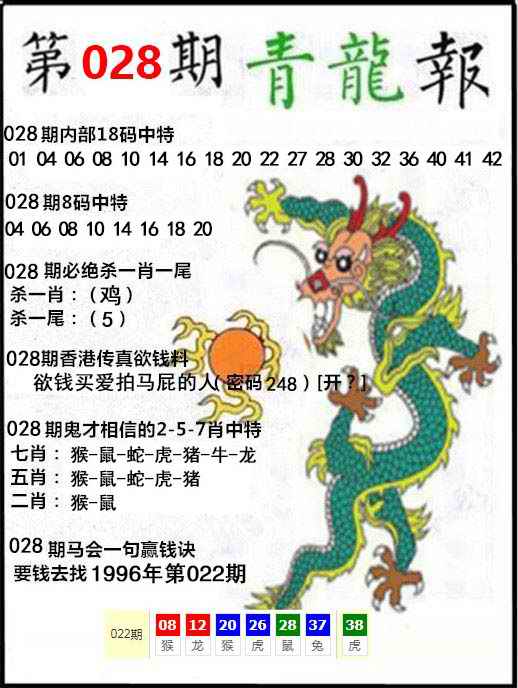 第028期青龍報
028期内部18码中特
01 04 06 08 10 14 16 18 20 22 27 28 30 32 36 40 41 42
028期8码中特
04 06 08 10 14 16 18 20
028 期必绝杀一肖一尾
杀一肖：（鸡）
杀一尾：（5）
028期香港传真欲钱料
欲钱买爱拍马屁的人（密码248）[开？]
028期鬼才相信的2-5-7肖中特
七肖：猴-鼠-蛇-虎-猪-牛-龙
五肖：猴-鼠-蛇-虎-猪
二肖：猴-鼠
028 期马会一句赢钱诀
要钱去找1996年第022期
022期 08 12 20 26 28 37 38
猴 龙 猴 虎 鼠 兔 虎